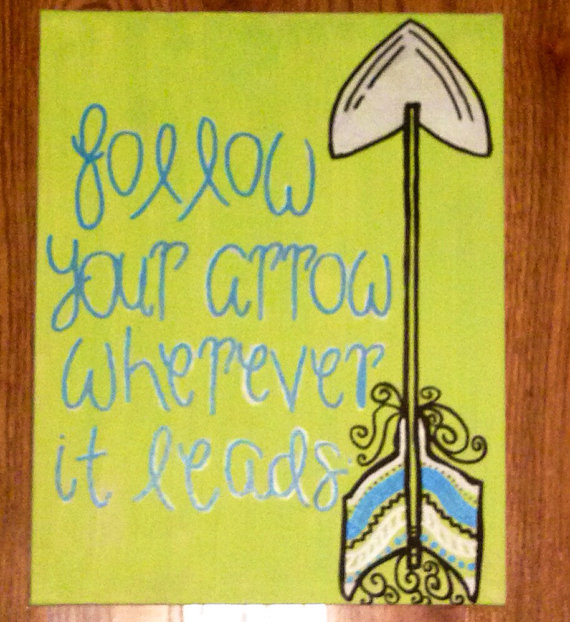 follow
your arrow
wherever
it leads